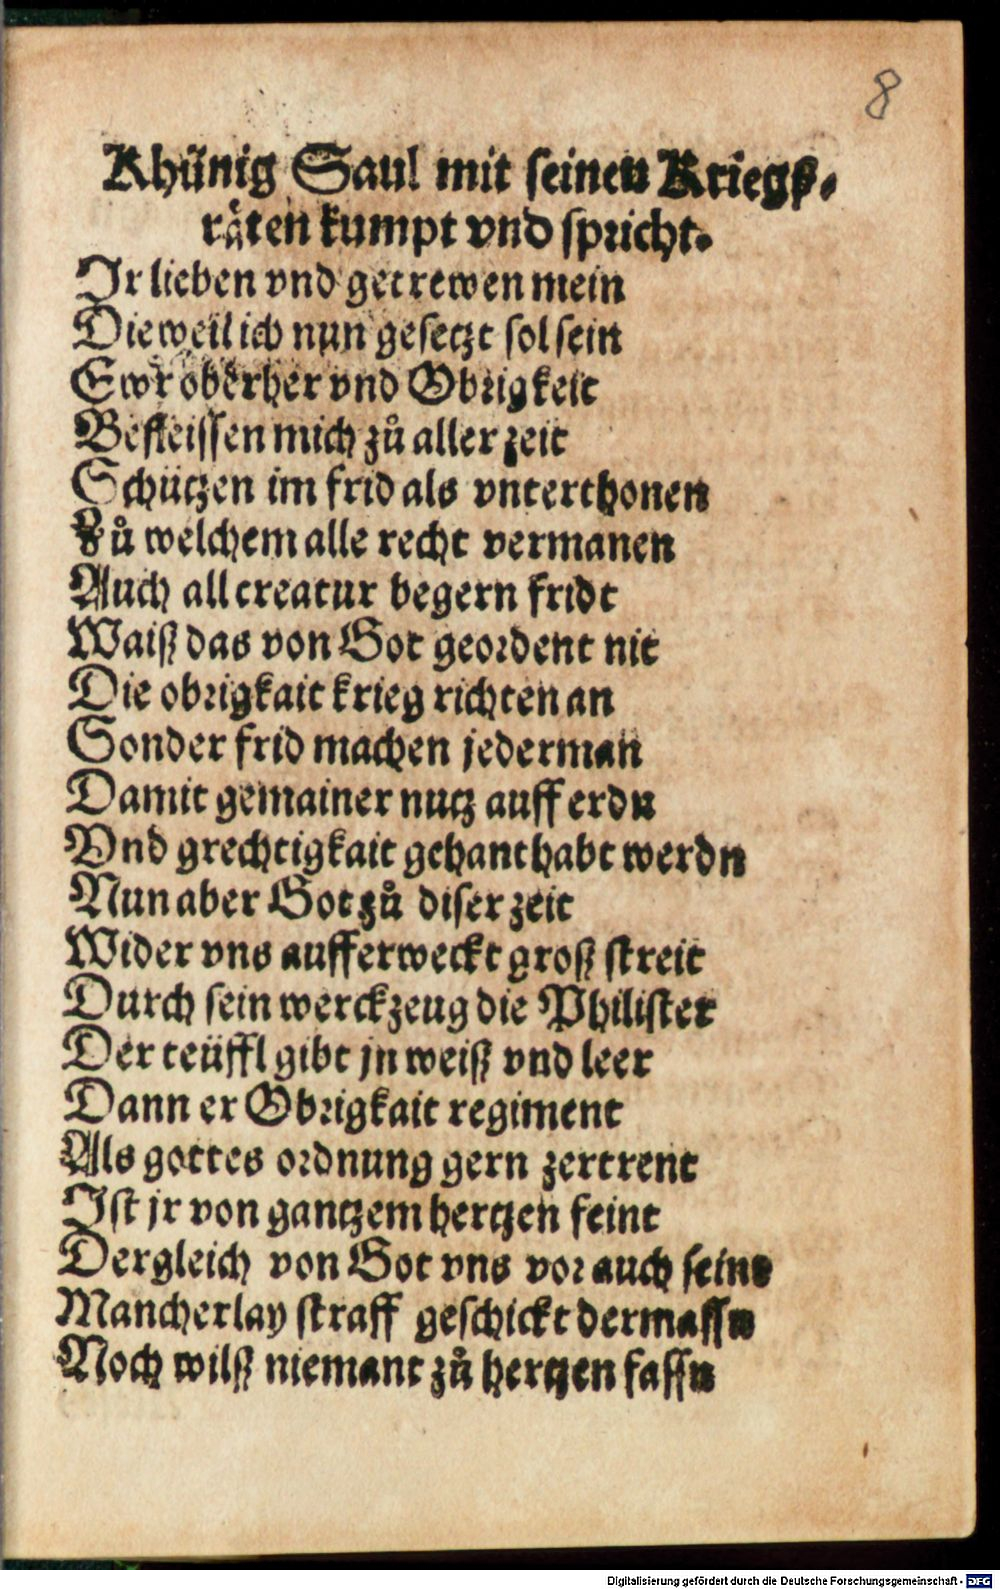 8
Khünig Saul mit seinen Kriegß-
räten kumpt vnd spricht.
Ir lieben vnd getrewen mein
Dieweil ich nun gesetzt sol sein
Ewr oberher vnd Obrigkeit
Befleissen mich zů aller zeit
Schützen im frid als vnterthonen
Zů welchem alle recht vermanen
Auch all creatur begern fridt
Waiß das von Got geordent nit
Die obrigkait krieg richten an
Sonder frid machen jederman
Damit gemainer nutz auff erdn
Vnd grechtigkait gehanthabt werdn
Nun aber Got zů diser zeit
Wider vns aufferweckt groß streit
Durch sein werckzeug die Philister
Der teüffl gibt jn weiß vnd leer
Dann er Obrigkait regiment
Als gottes ordnung gern zertrent
Ist jr von gantzem hertzen feint
Dergleich von Got vns vor auch seint
Mancherlay straff geschickt dermassn
Noch wilß niemant zů hertzen fassn
Digitalisierung gefördert durch die Deutsche Forschungsgemeinschaft - DFG